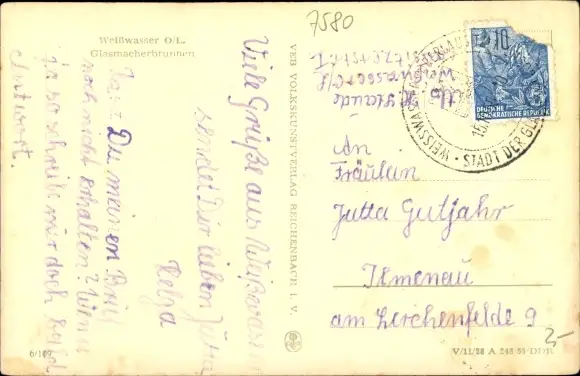 7580
Weißwasser O/L.
Glasmacherbrunnen
Viele Grüße aus Weißwasser
sendet Dir liebe Jutta
Helga
Hast Du meinen Brief
noch nicht erhalten? Wenn
ja so schreib mir doch bald
Antwort.
6/109
VEB VOLKSKUNSTVERLAG REICHENBACH i. V.
10
DEUTSCHE
DEMOKRATISCHE REPUBLIK
WEISSWASSER
STADT DER GLAS
Weißwasser O/L
An
Fräulein
Jutta Gutjahr
Ilmenau
am Lerchenfelde 9
V/11/28 A 245 55 DDR